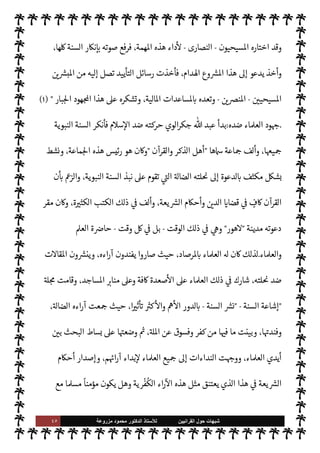 وقد اختاره المسيحيون - النصارى - لأداء هذه المهمة، فرفع صوته بإنكار السنة كلها،
وأخذ يدعو إلى هذا المشروع الهدام، فأخذت رسائل التأييد تصل إليه من المبشرين
المسيحيين - المنصرين - وتعده بالمساعدات المالية، وتشكره على هذا المجهود الجبار " (١)
.جهود العلماء ضده:بدأ عبد الله جكرالوي حركته ضد الإسلام فأنكر السنة النبوية
جميعها، وألف جماعة سماها "أهل الذكر والقرآن "وكان هو رئيس هذه الجماعة، ونشط
بشكل مكثف بالدعوة إلى نحلته الضالة التي تقوم على نبذ السنة النبوية، والزعم بأن
القرآن كاف في قضايا الدين وأحكام الشريعة، وألف في ذلك الكتب الكثيرة، وكان مقر
دعوته مدينة "لاهور" وهي في ذلك الوقت - بل في كل وقت - حاضرة العلم
والعلماء.لذلك كان له العلماء بالمرصاد، حيث صاروا يفندون آراءه، وينشرون المقالات
ضد نحلته، شارك في ذلك العلماء على الأصعدة كافة وعلى منابر المساجد، وقامت مجلة
"إشاعة السنة - "نشر السنة - بالدور الأهم والأكثر تأثيرا، حيث جمعت آراءه الضالة،
وفندتها، وبينت ما فيها من كفر وفسوق عن الملة، ثم وضعتها على بساط البحث بين
أيدي العلماء، ووجهت النداءات إلى جميع العلماء لإبداء آرائهم، وإصدار أحكام
الشريعة في هذا الذي يعتنق مثل هذه الآراء الكفرية وهل يكون مؤمناً مسلما مع
شبهات حول القرآنيين للأستاذ الدكتور محمود مزروعة ٤٥